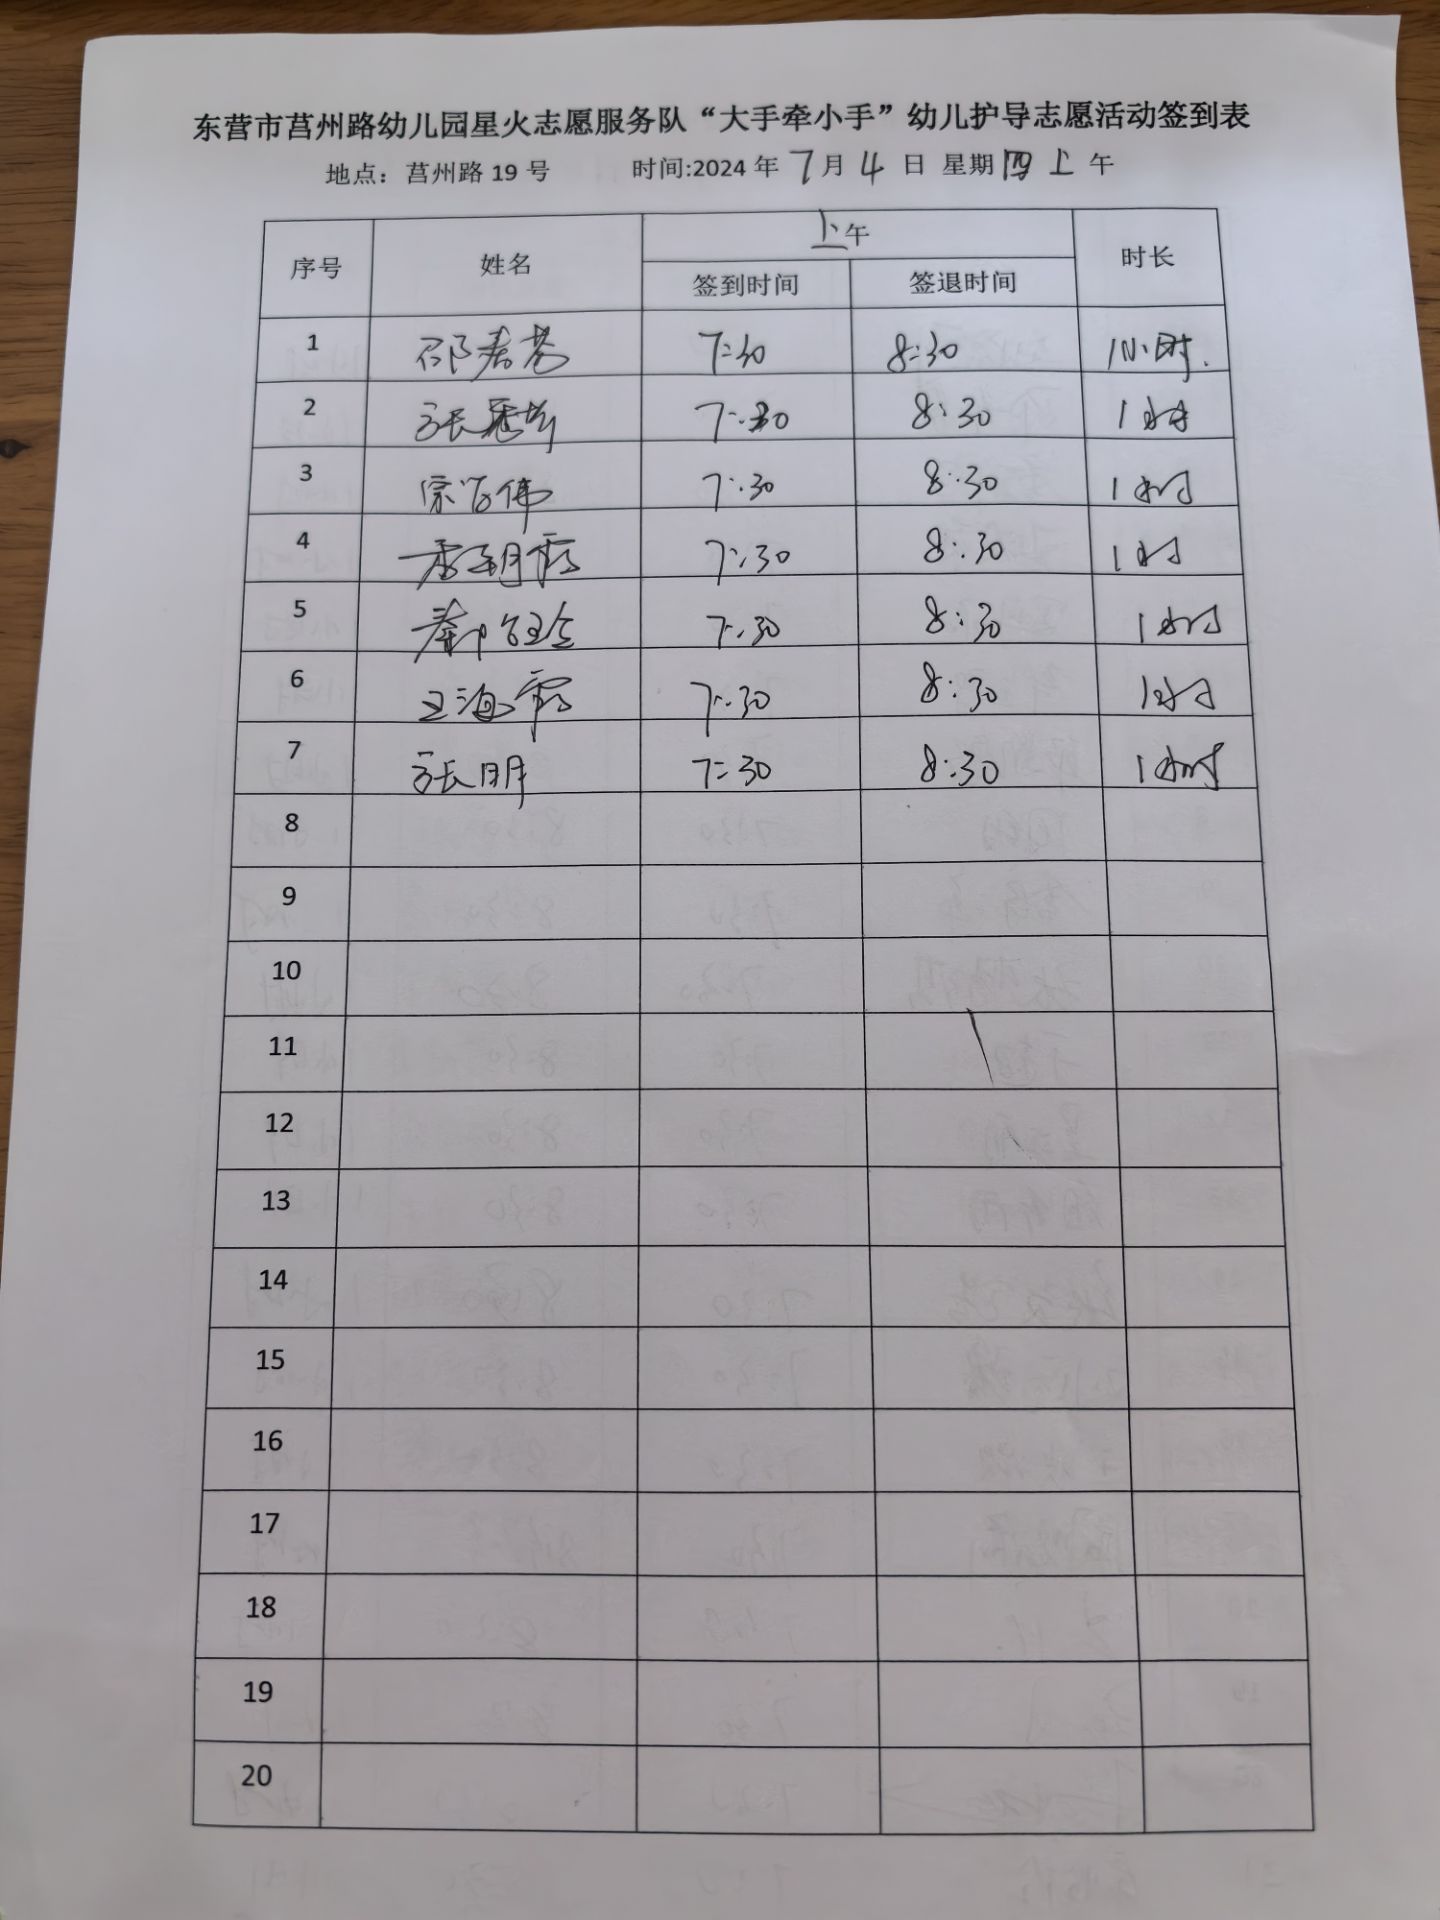 东营市莒州路幼儿园星火志愿服务队“大手牵小手”幼儿护导志愿活动签到表
地点：莒州路 19 号 时间:2024 年 7 月 4 日 星期四 上 午
序号 姓名 上午 时长
签到时间 签退时间
1 邵 7:30 8:30 1小时.
2 张 7:30 8:30 1小时
3 宗 伟 7:30 8:30 1小时
4 李明霞 7:30 8:30 1小时
5 7:30 8:30 1小时
6 王海霞 7:30 8:30 1小时
7 张明 7:30 8:30 1小时
8
9
10
11
12
13
14
15
16
17
18
19
20